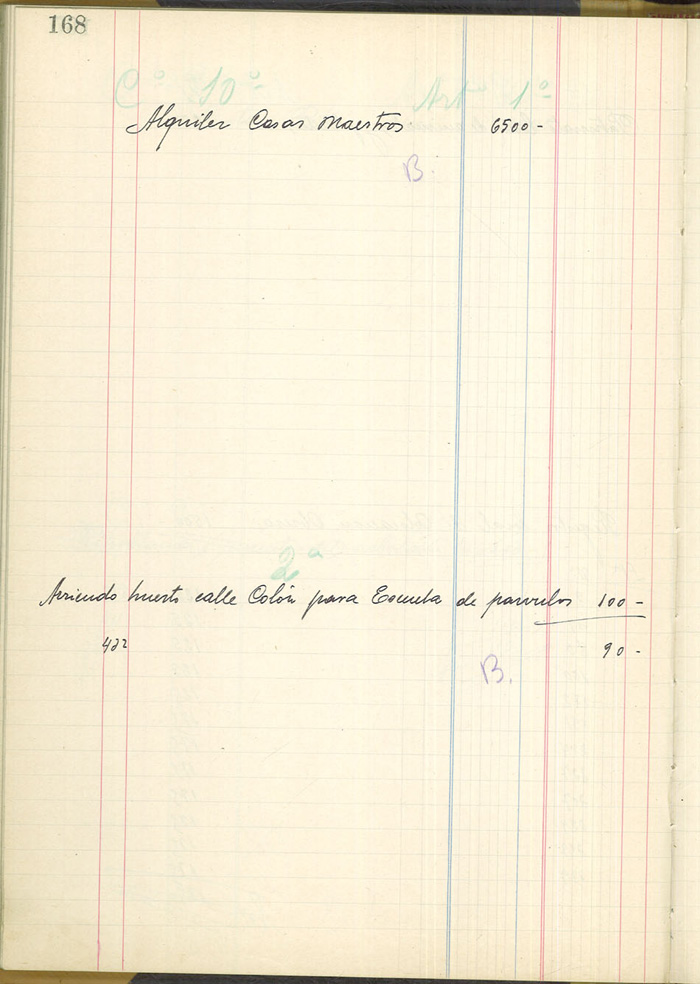 168
Cº 10º Artº 1º
Alquiler Casas Maestros 6500-
B.
2ª
Arriendo huerto calle Colón para Escuela de parvulos 100-
432 90-
B.